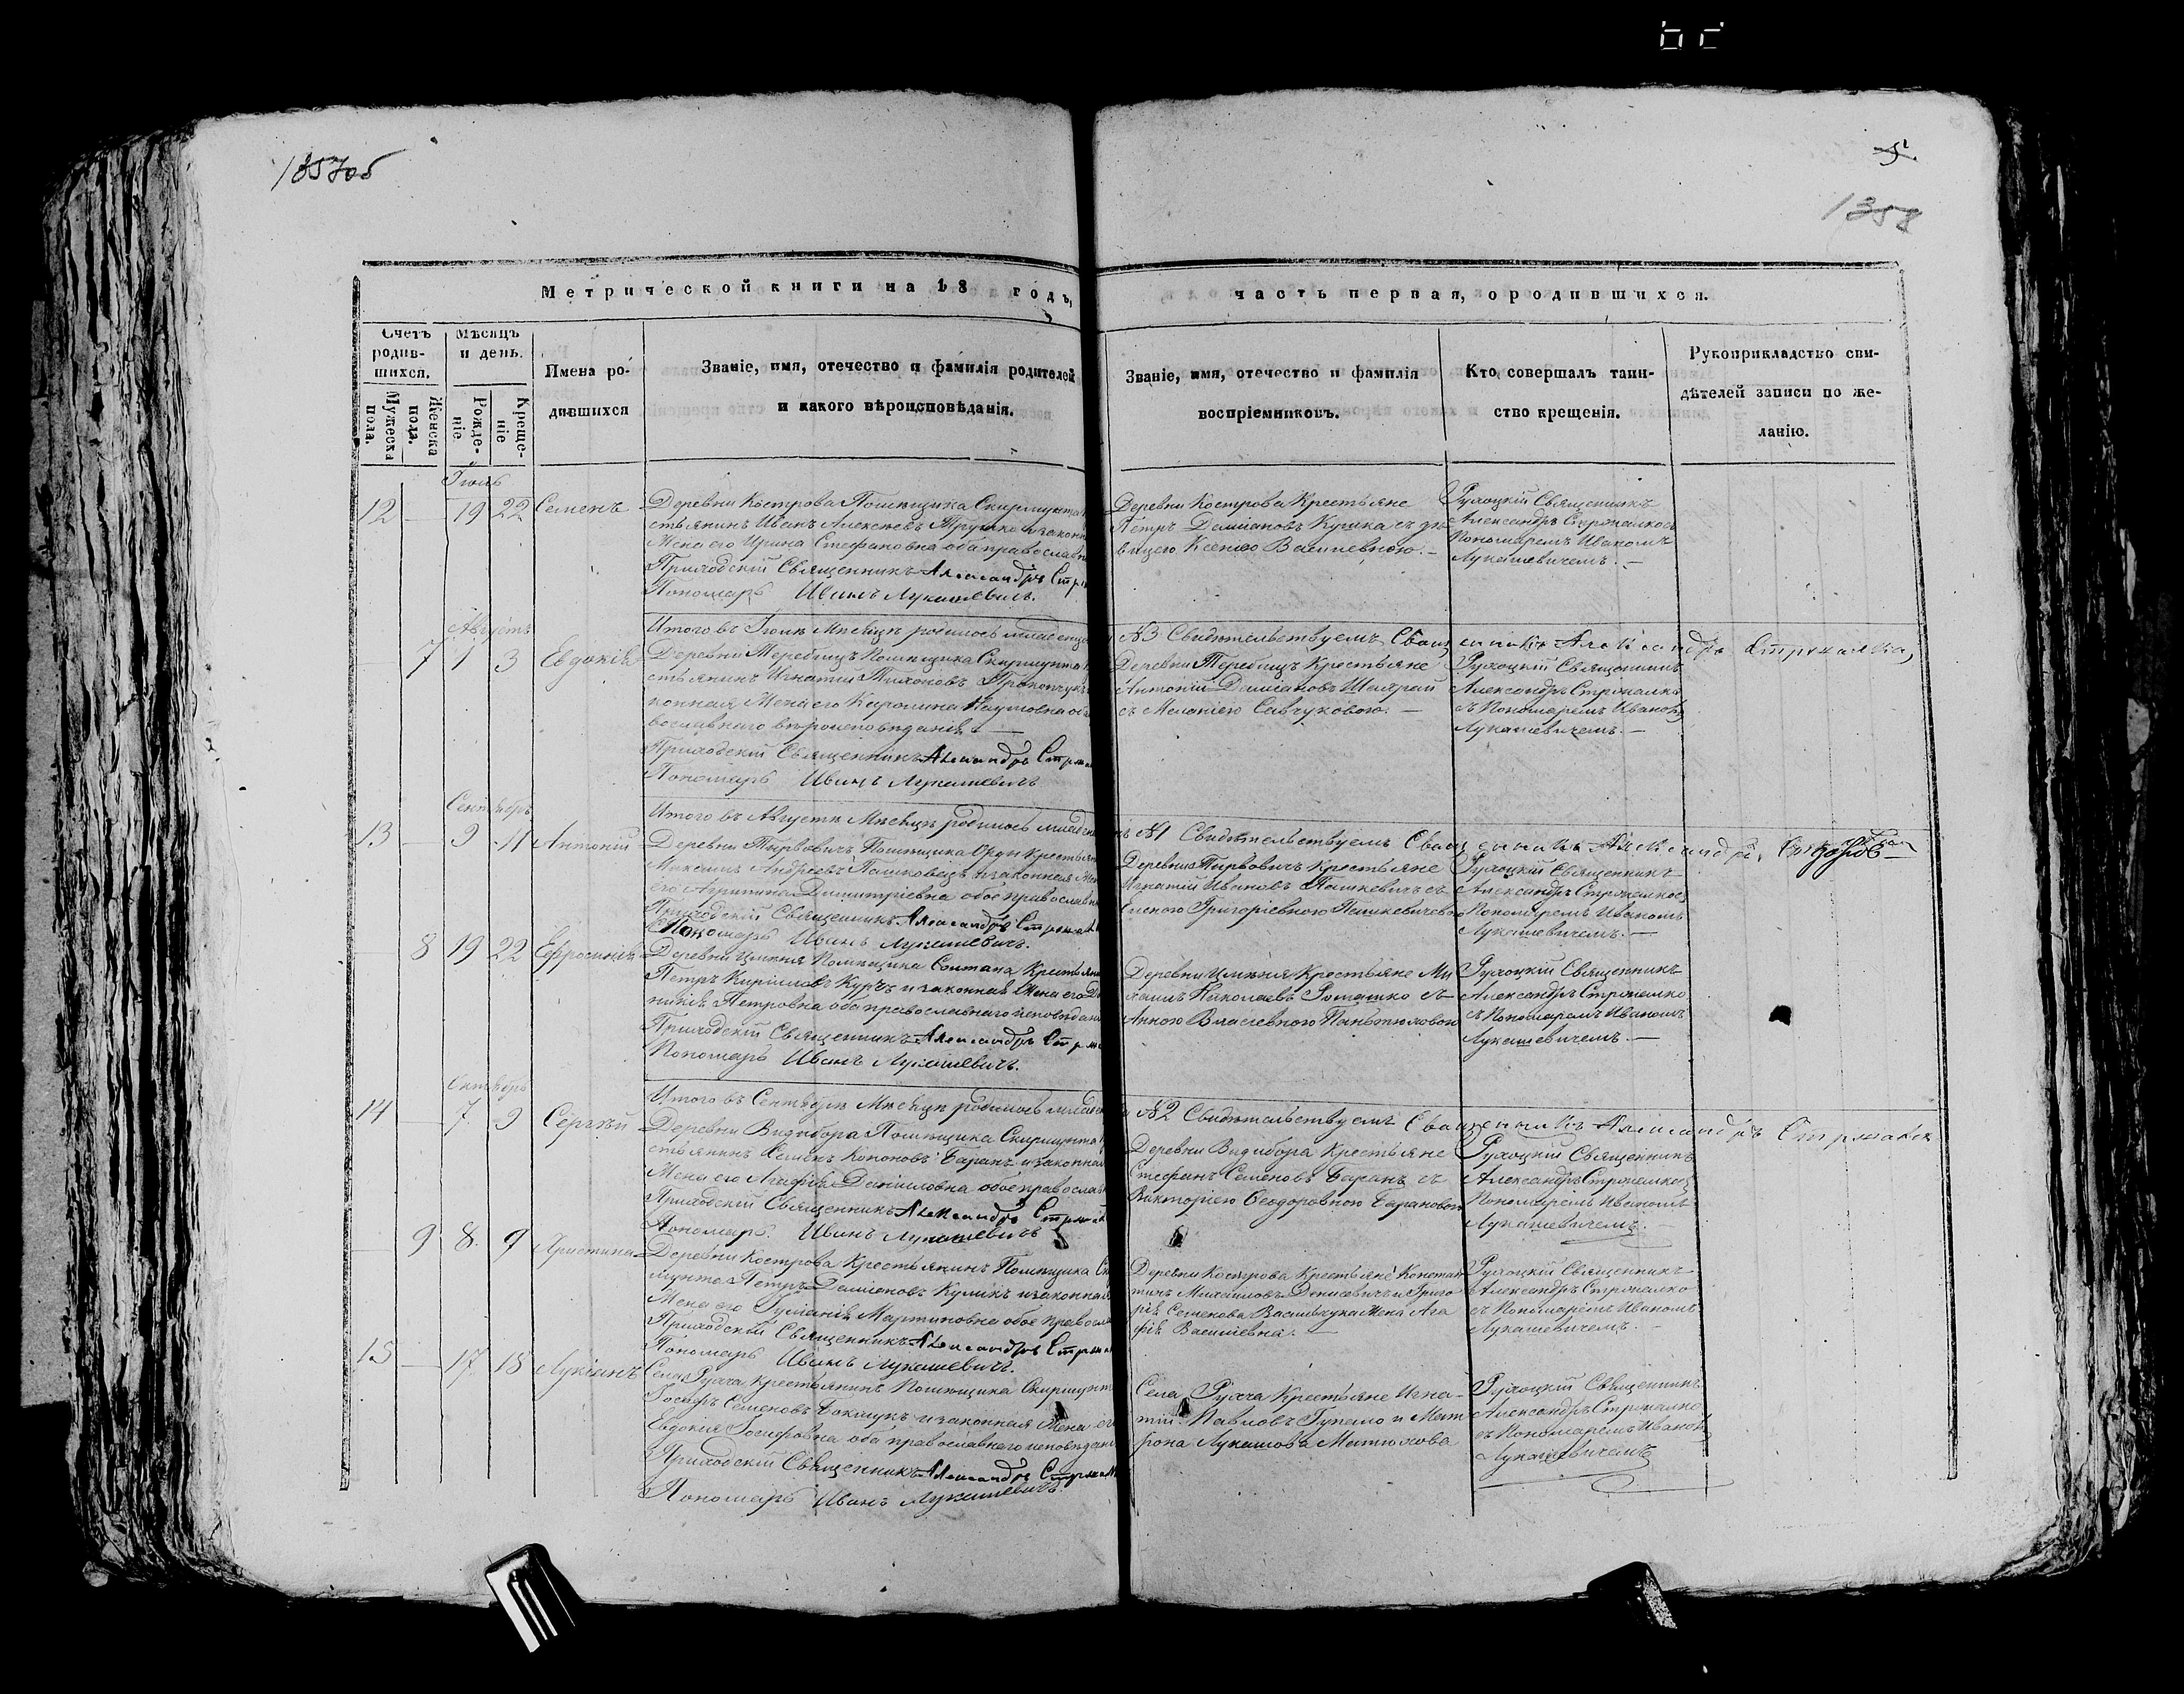 1357об
5
1358
Метрической книги на 18 годъ,
часть первая, о родившихся.
Счетъ родив-шихся.
Мужеска пола.
Женска пола.
Мѣсяцъ и день.
Рожде-ніе
Креще-ніе
Имена ро-
дившихся
Званіе, имя, отечество и фамилія родителей
и какого вѣроисповѣданія.
Званіе, имя, отечество и фамилія
воспріемниковъ.
Кто совершалъ таин-
ство крещенія.
Рукоприкладство сви-
дѣтелей записи по же-
ланію.
Іюль
12 — 19 22 Семенъ
Деревни Кострова Помѣщика Скирмунта
стьянинъ Иванъ Алексѣевъ и законн
Жена его Ирина Стефановна оба православн
Приходскій Священникъ Александръ
Пономарь Иванъ Лукашевичъ.
Деревни Кострова Крестьяне
Петръ Даміановъ съ дѣ-
вицею Ксеніею Васильевною. —
Священникъ
Александръ
Пономаремъ Иваномъ
Лукашевичемъ. —
Итого въ Іюлѣ Мѣсяцѣ родилось младенцо
№3 Свидѣтельствуемъ Священникъ Александръ
Августъ
— 7 1 3 Евдокія
Деревни Теребищъ Помѣщика Скирмунта
стьянинъ Игнатій Тихоновъ
конная Жена его Каролина
вославнаго вѣроисповѣданія —
Приходскій Священникъ Александръ
Пономарь Иванъ Лукашевичъ
Деревни Теребищъ Крестьяне
Антоній Даміановъ
съ Меланіею Савчуковою. —
Священникъ
Александръ
съ Пономаремъ Иваномъ
Лукашевичемъ. —
Итого въ Августѣ Мѣсяцѣ родилось младен
№1 Свидѣтельствуемъ Священникъ Александръ
Сентябрь
13 — 9 11 Антоній
Деревни Помѣщика Крестьян
Максимъ Андреевъ и законная Же
его Агрипина Димитріевна обое православн
Приходскій Священникъ Александръ
Пономарь Иванъ Лукашевичъ.
Деревни Крестьяне
Игнатій Ивановъ Пашкевичъ съ
Еленою Григоріевною Пашкевичево
Священникъ
Александръ
Пономаремъ Иваномъ
Лукашевичемъ. —
8 19 22 Ефросинія
Деревни Помѣщика Крестьяни
Петръ Кирилловъ и законная Жена его
Петровна оба православнаго исповѣдан
Приходскій Священникъ Александръ
Пономарь Иванъ Лукашевичъ.
Деревни Крестьяне Ми
хаилъ Николаевъ Ромашко съ
Анною Власіевною
Священникъ
Александръ
съ Пономаремъ Иваномъ
Лукашевичемъ. —
Итого въ Сентябрѣ Мѣсяцѣ родилось младен
№2 Свидѣтельствуемъ Священникъ Александръ
Октябрь
14 — 7 9 Сергѣй
Деревни Видибора Помѣщика Скирмунта
стьянинъ Семенъ Кононовъ Баранъ и законная
Жена его Агафія Даніиловна обое православ
Приходскій Священникъ Александръ
Пономарь Иванъ Лукашевичъ
Деревни Видибора Крестьяне
Стефанъ Семеновъ Баранъ съ
Викторіею Ѳеодоровною Барановою
Священникъ
Александръ
Пономаремъ Иваномъ
Лукашевичемъ. —
— 9 8 9 Христина
Деревни Кострова Крестьянинъ Помѣщика Ски
мунта Петръ Даміановъ и законная
Жена его Іуліанія Мартиновна обое правосла
Приходскій Священникъ Александръ
Пономарь Иванъ Лукашевичъ.
Деревни Кострова Крестьяне Констан
тинъ Михайловъ Денисевичъ и Григо
рія Семенова Васильчука Жена Ага
фія Васильевна. —
Священникъ
Александръ
съ Пономаремъ Иваномъ
Лукашевичемъ. —
15 — 17 18 Лукіанъ
Села крестьянинъ Помѣщика Скирмунт
Іосифъ Семеновъ и законная Жена его
Евдокія Іосифовна оба православнаго исповѣдані
Приходскій Священникъ Александръ
Пономарь Иванъ Лукашевичъ.
Села Крестьяне Игна-
тій Павловъ и Мат
рона Лукашова
Священникъ
Александръ
съ Пономаремъ Иваномъ
Лукашевичемъ